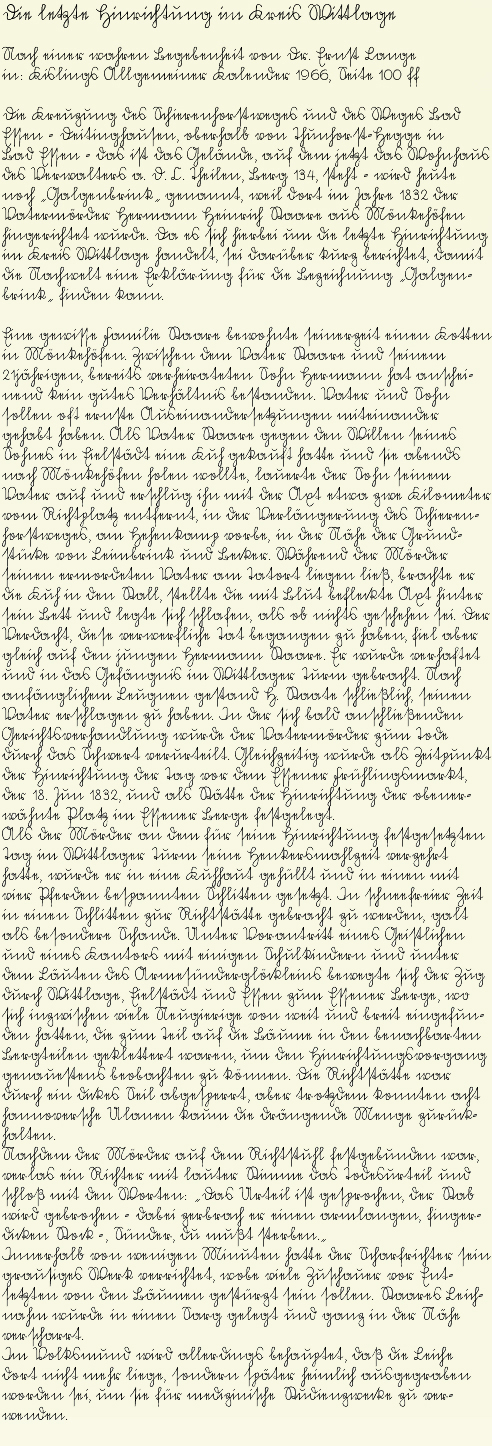 Die letzte Hinrichtung im Kreis Wittlage
Nach einer wahren Begebenheit von Dr. Ernst Lange
in: Kislings Allgemeiner Kalender 1966, Seite 100 ff
Die Kreuzung des Schierenhorstweges und des Weges Bad
Essen - Deitinghausen, oberhalb von Thunhorst-Hegge in
Bad Essen - das ist das Gelände, auf dem jetzt das Wohnhaus
des Verwalters a. D. L. Theilen, Berg 134, steht - wird heute
noch „Galgenbrink„ genannt, weil dort im Jahre 1832 der
Vatermörder Hermann Heinrich Staare aus Mönkehöfen
hingerichtet wurde. Da es sich hierbei um die letzte Hinrichtung
im Kreis Wittlage handelt, sei darüber kurz berichtet, damit
die Nachwelt eine Erklärung für die Bezeichnung „Galgen-
brink„ finden kann.
Eine gewisse Familie Staare bewohnte seinerzeit einen Kotten
in Mönkehöfen. Zwischen dem Vater Staare und seinem
25jährigen, bereits verheirateten Sohn Hermann hat anschei-
nend kein gutes Verhältnis bestanden. Vater und Sohn
sollen oft ernste Auseinandersetzungen miteinander
gehabt haben. Als Vater Staare gegen den Willen seines
Sohnes in Eielstädt eine Kuh gekauft hatte und sie abends
nach Mönkehöfen holen wollte, lauerte der Sohn seinem
Vater auf und erschlug ihn mit der Axt etwa zwei Kilometer
vom Richtplatz entfernt, in der Verlängerung des Schieren-
horstweges, am Hehenkamp vorbei, in der Nähe der Grund-
stücke von Leimbrink und Lecker. Während der Mörder
seinen ermordeten Vater am Tatort liegen ließ, brachte er
die Kuh in den Stall, stellte die mit Blut befleckte Axt hinter
sein Bett und legte sich schlafen, als ob nichts geschehen sei. Der
Verdacht, diese verwerfliche Tat begangen zu haben, fiel aber
gleich auf den jungen Hermann Staare. Er wurde verhaftet
und in das Gefängnis im Wittlager Turm gebracht. Nach
anfänglichem Leugnen gestand H. Staate schließlich, seinen
Vater erschlagen zu haben. In der sich bald anschließenden
Gerichtsverhandlung wurde der Vatermörder zum Tode
durch das Schwert verurteilt. Gleichzeitig wurde als Zeitpunkt
der Hinrichtung der Tag vor dem Essener Frühlingsmarkt,
der 18. Jun 1832, und als Stätte der Hinrichtung der obener-
wähnte Platz im Essener Berge festgelegt.
Als der Mörder an dem für seine Hinrichtung festgesetzten
Tag im Wittlager Turm seine Henkersmahlzeit verzehrt
hatte, wurde er in eine Kuhhaut gehüllt und in einen mit
vier Pferden bespannten Schlitten gesetzt. In schneefreier Zeit
in einem Schlitten zur Richtstätte gebracht zu werden, galt
als besondere Schande. Unter Vorantritt eines Geistlichen
und eines Kantors mit einigen Schulkindern und unter
dem Läuten des Armesünderglöckleins bewegte sich der Zug
durch Wittlage, Eielstädt und Essen zum Essener Berge, wo
sich inzwischen viele Neugierige von weit und breit eingefun-
den hatten, die zum Teil auf die Bäume in den benachbarten
Bergteilen geklettert waren, um den Hinrichtungsvorgang
genauestens beobachten zu können. Die Richtstätte war
durch ein dickes Seil abgesperrt, aber trotzdem konnten acht
hannoversche Ulanen kaum die drängende Menge zurück-
halten.
Nachdem der Mörder auf dem Richtstuhl festgebunden war,
verlas ein Richter mit lauter Stimme das Todesurteil und
schloß mit den Worten: „Das Urteil ist gesprochen, der Stab
wird gebrochen - dabei zerbrach er einen armlangen, finger-
dicken Stock -, Sünder, du mußt sterben.„
Innerhalb von wenigen Minuten hatte der Scharfrichter sein
grausiges Werk verrichtet, wobei viele Zuschauer vor Ent-
setzten von den Bäumen gestürzt sein sollen. Staares Leich-
nahm wurde in einen Sarg gelegt und ganz in der Nähe
verscharrt.
Im Volksmund wird allerdings behauptet, daß die Leiche
dort nicht mehr liege, sondern später heimlich ausgegraben
worden sei, um sie für medizinische Studienzwecke zu ver-
wenden.